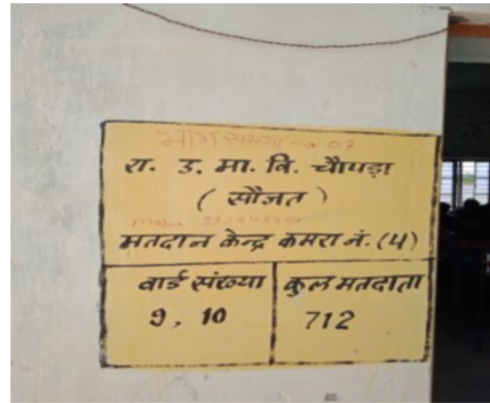 भाग संख्या → 07
रा. उ. मा. वि. चौपड़ा
( सौजत )
मतदान केन्द्र कमरा नं. (4)
वार्ड संख्या कुल मतदाता
9, 10 712